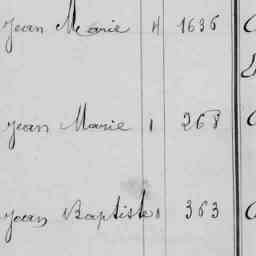 Jean Marie 4 1636
Jean Marie 1 268
Jean Baptiste 1 363